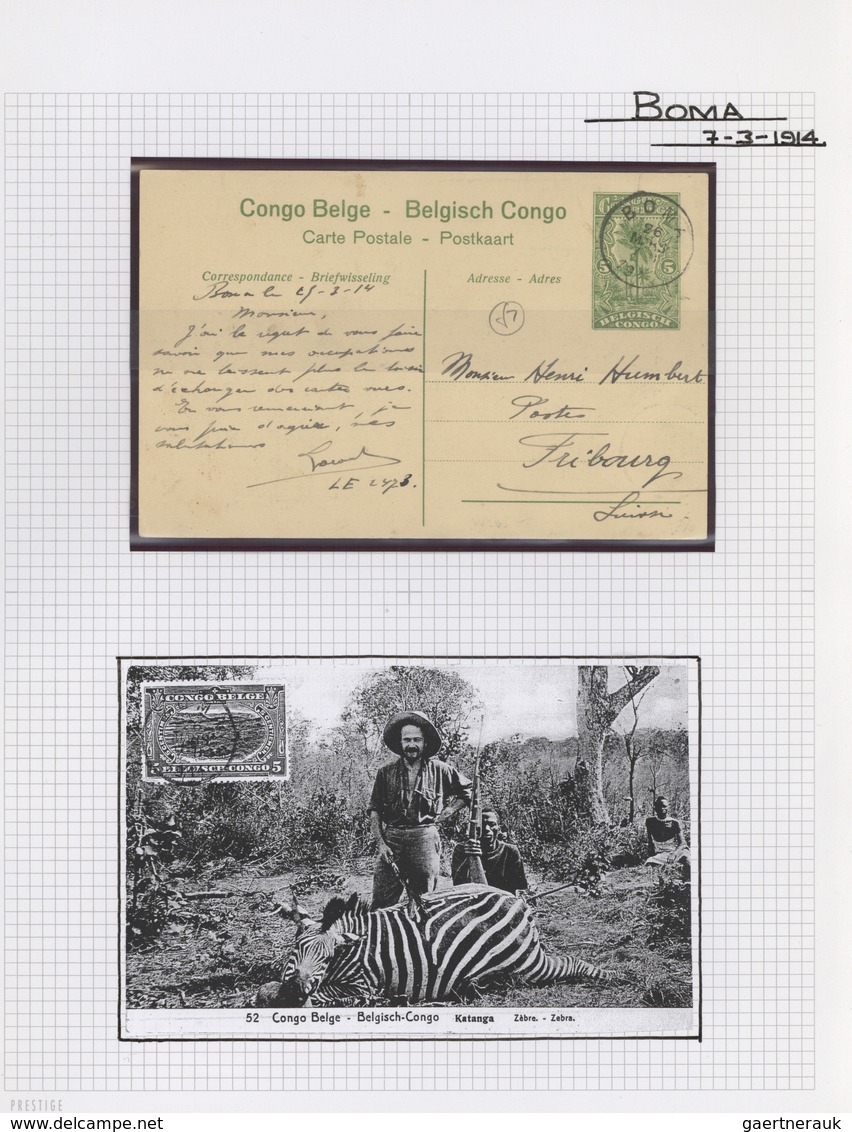 BOMA
7-3-1914.
Congo Belge - Belgisch Congo
Carte Postale - Postkaart
Correspondance - Briefwisseling
Adresse - Adres
BOMA
26
5
5
BELGISCH
CONGO
Boma le 25-3-14
Monsieur,
J'ai le regret de vous faire
savoir que mes occupations
ne me laissent plus le loisir
d'échanger des cartes vues.
En vous remerciant, je
vous prie d'agréer, mes
salutations
LE 2473.
Monsieur Henri Humbert
Postes
Fribourg
Suisse
CONGO BELGE
5
5
BELGISCH-CONGO
52 Congo Belge - Belgisch-Congo Katanga Zèbre. - Zebra.
PRESTIGE
gaertnerauk